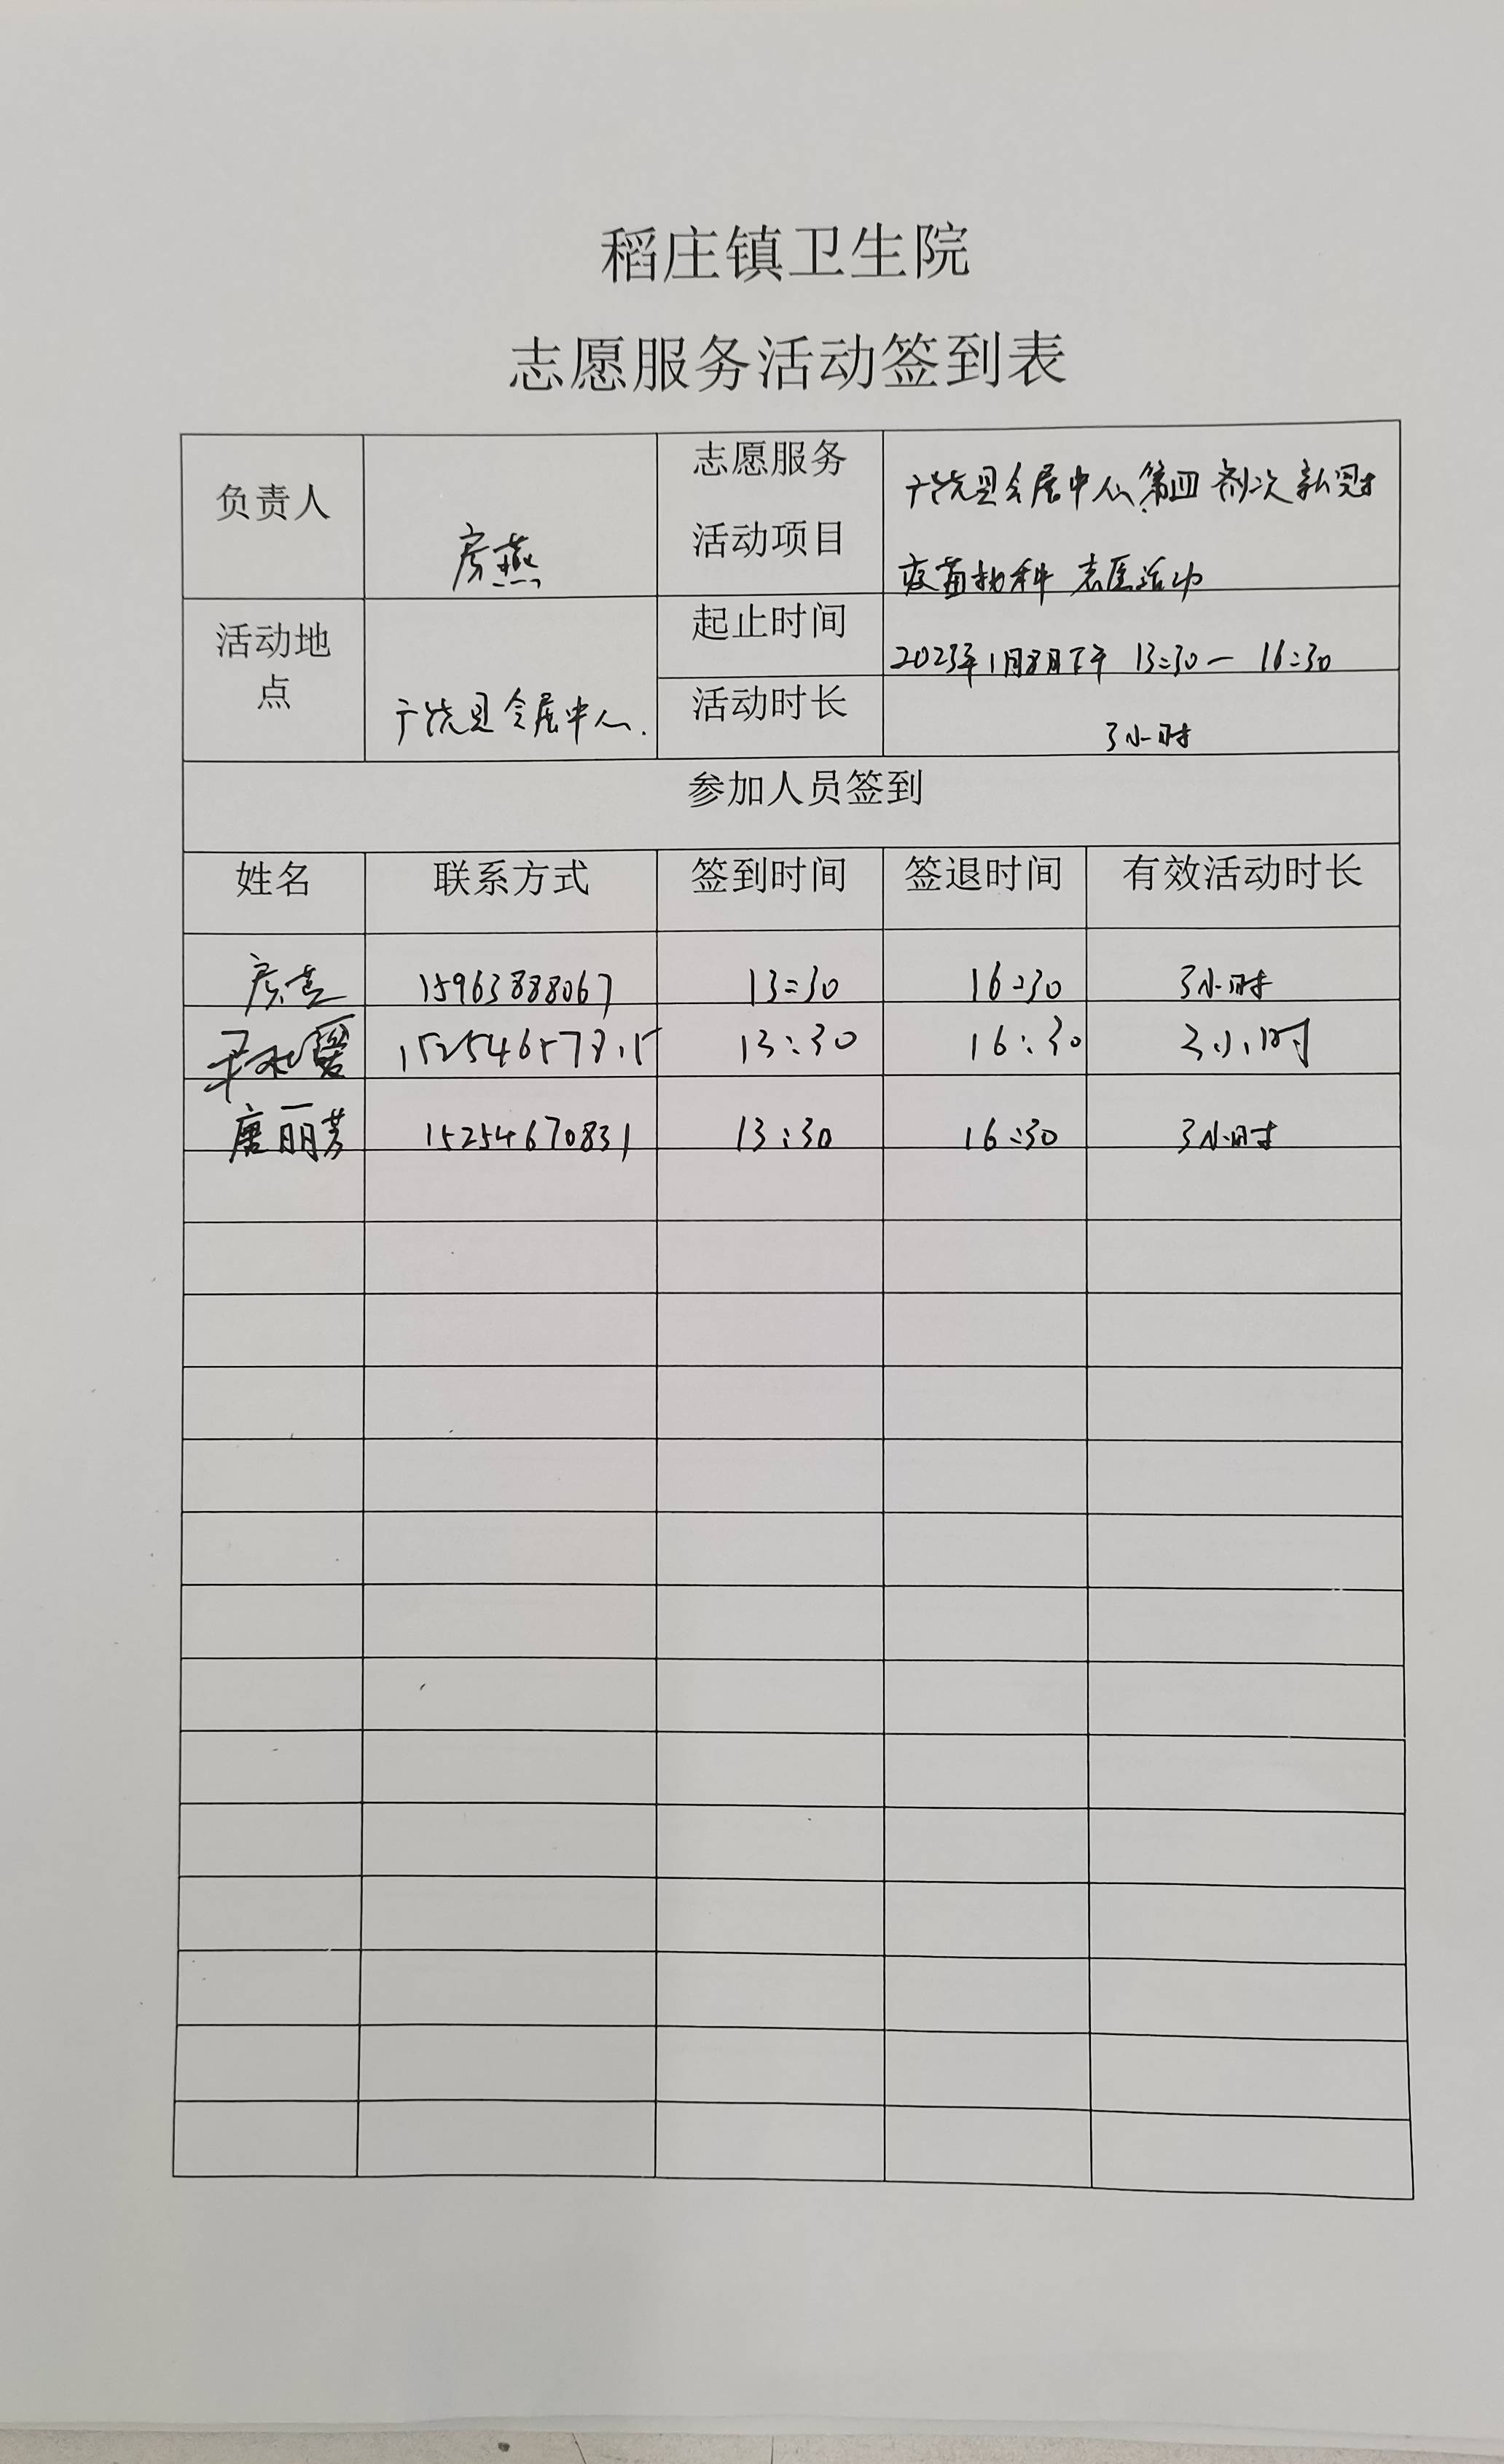 稻庄镇卫生院
志愿服务活动签到表
负责人 房燕 志愿服务活动项目 广饶县会展中心第四剂次新冠
疫苗接种志愿活动
活动地点 广饶县会展中心. 起止时间 2023年1月8日下午 13:30一16:30
活动时长 3小时
参加人员签到
姓名 联系方式 签到时间 签退时间 有效活动时长
房燕 15963888067 13:30 16:30 3小时
13:30 16:30 3小时
唐丽芳 15254670831 13:30 16:30 3小时